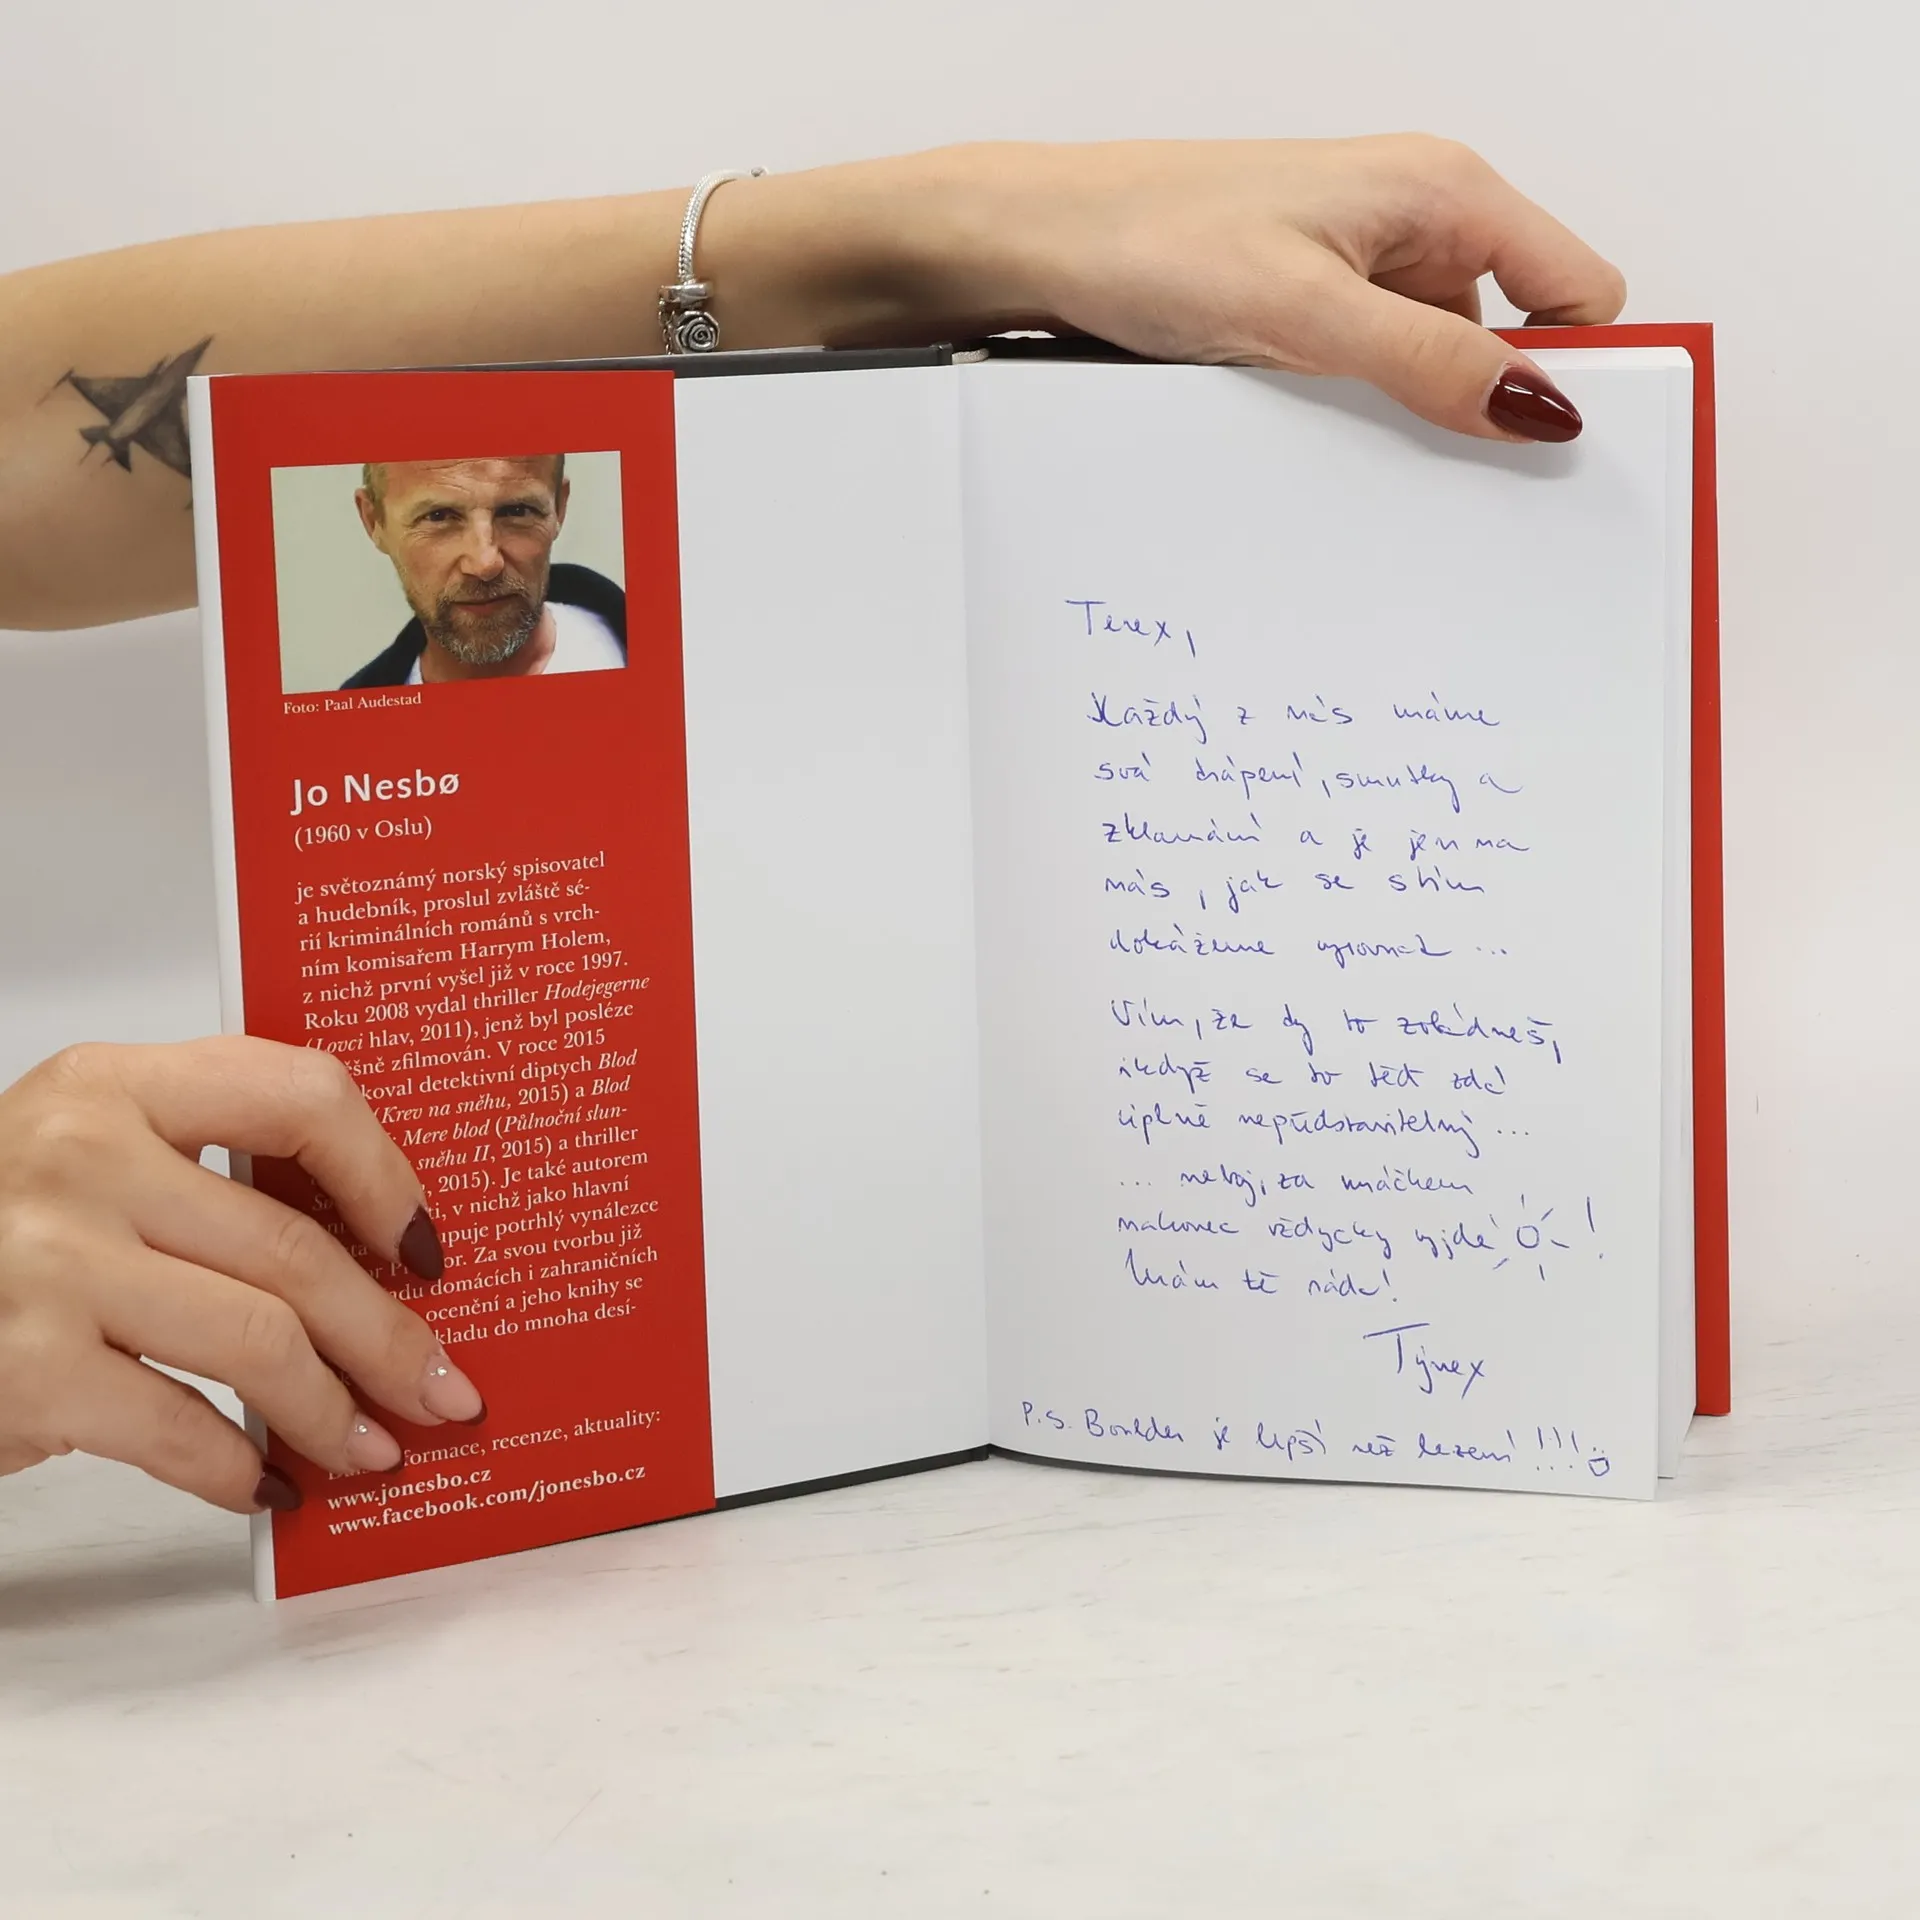 Foto: Paal Audestad
Jo Nesbø
(1960 v Oslu)
je světoznámý norský spisovatel
a hudebník, proslul zvláště sé-
rií kriminálních románů s vrch-
ním komisařem Harrym Holem,
z nichž první vyšel již v roce 1997.
Roku 2008 vydal thriller Hodejegerne
(Lovci hlav, 2011), jenž byl posléze
ěšně zfilmován. V roce 2015
koval detektivní diptych Blod
(Krev na sněhu, 2015) a Blod
Mere blod (Půlnoční slun-
sněhu II, 2015) a thriller
, 2015). Je také autorem
ti, v nichž jako hlavní
upuje potrhlý vynálezce
or. Za svou tvorbu již
adu domácích i zahraničních
ocenění a jeho knihy se
kladu do mnoha desí-
formace, recenze, aktuality:
www.jonesbo.cz
www.facebook.com/jonesbo.cz
Terex,
Každý z nás máme
svá trápení, smutky a
zklamání a je jen na
nás, jak se s tím
dokážeme vyrovnat ...
Vím, že ty to zvládneš,
i když se to teď zdá
úplně nepředstavitelný ...
... neboj, za mráčkem
nakonec vždycky vyjde !
Mám tě ráda!
Týnex
P.S. Boulder je lepší než lezení !!!